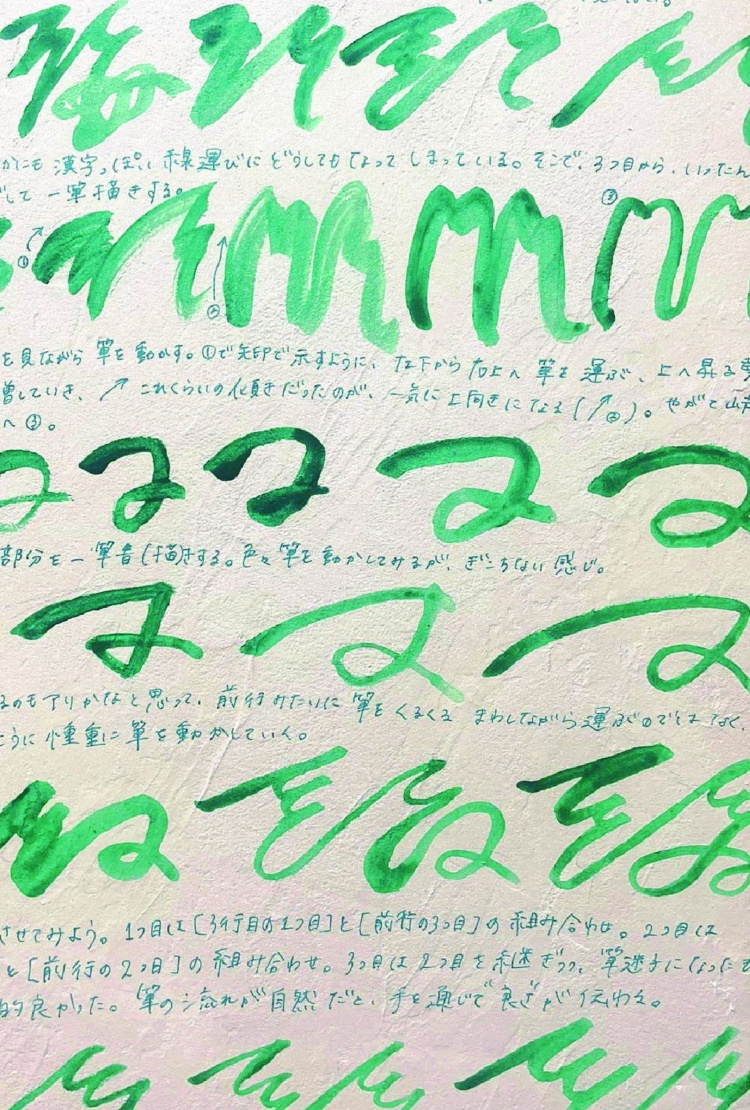 かにも漢字っぽい線運びにどうしてもなってしまっている。そこで、3つ目から、いったん
して一筆描きする。
①
②
③
を見ながら筆を動かす。①で矢印で示すように、左下から右上へ筆を運ぶ、上へ昇る
増していき、↗これくらいの傾きだったのが、一気に上向きになる(↗②)。やがて山
へ③。
部分を一筆書(描)きする。色々筆を動かしてみるが、ぎこちない感じ。
るのもアリかなと思って、前行みたいに筆をくるくるまわしながら運ぶのではなく、
ように慎重に筆を動かしていく。
させてみよう。1つ目は[3行目の1つ目]と[前行の3つ目]の組み合わせ。2つ目は
と[前行の2つ目]の組み合わせ。3つ目は2つ目を継ぎつつ、筆迷子になったで
的良かった。筆の流れが自然だと、手を通じて良さが伝わる。